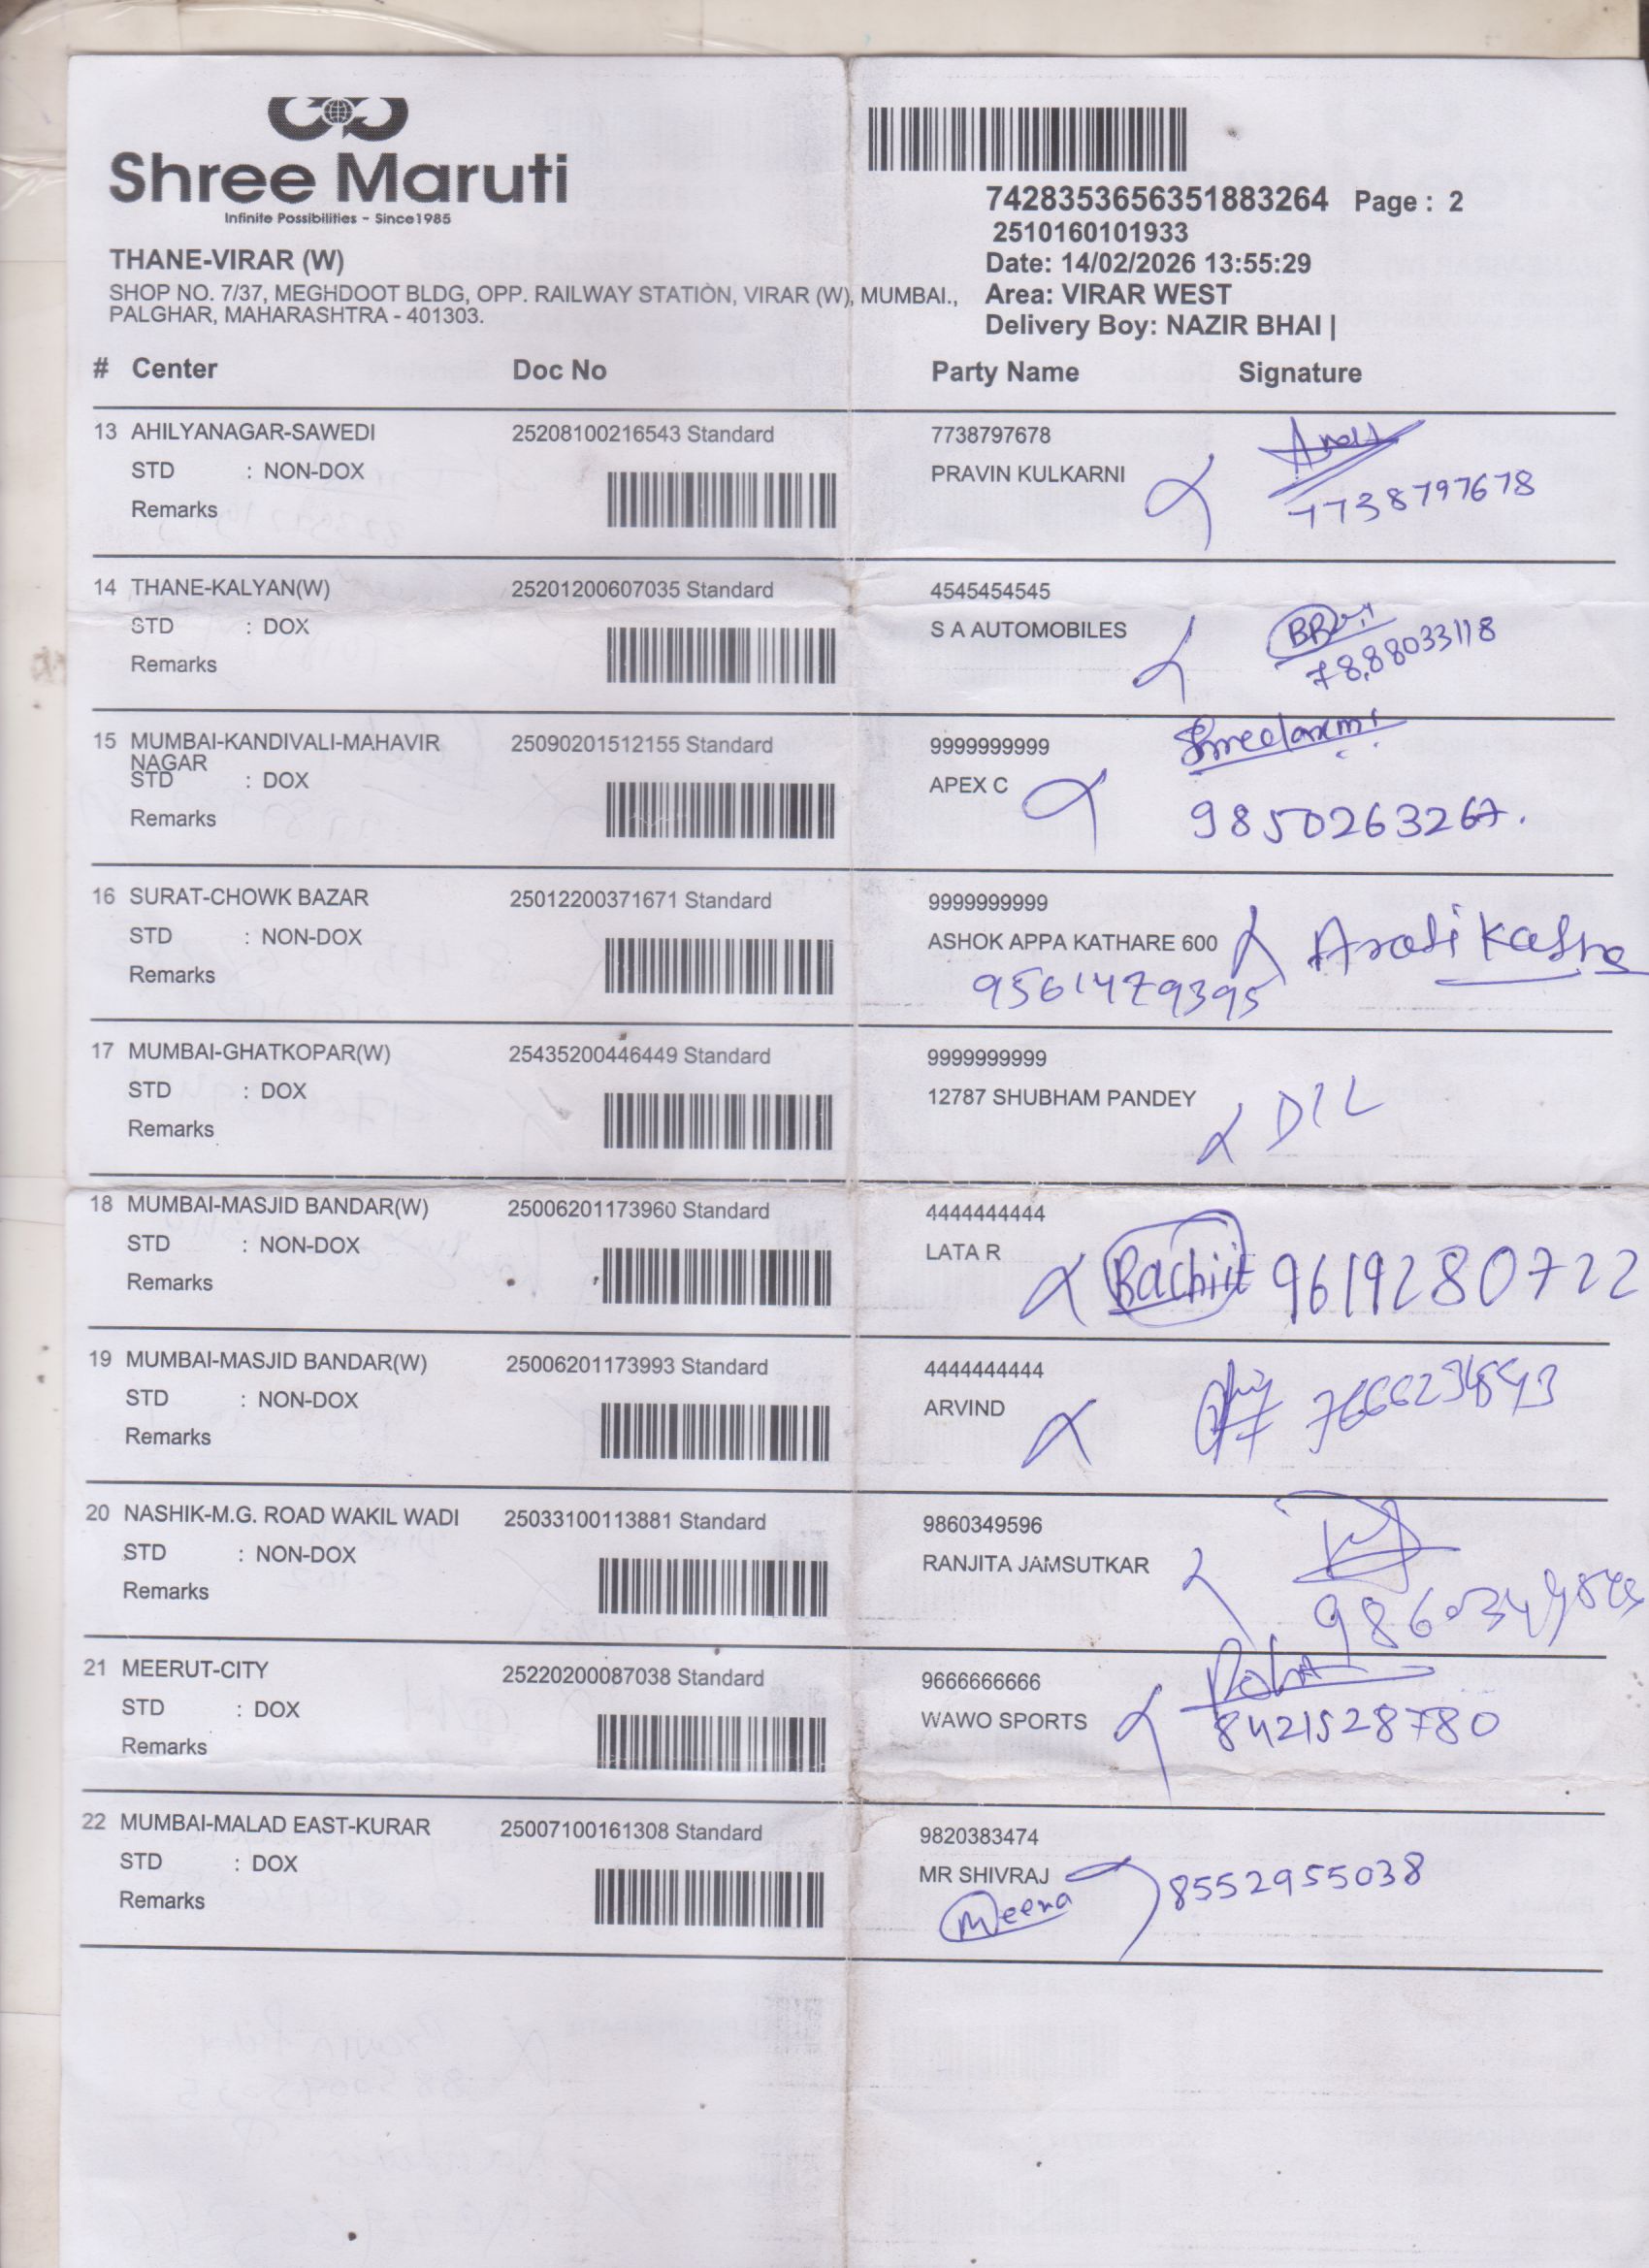 Shree Maruti
Infinite Possibilities - Since1985
7428353656351883264 Page : 2
2510160101933
THANE-VIRAR (W)
Date: 14/02/2026 13:55:29
SHOP NO. 7/37, MEGHDOOT BLDG, OPP. RAILWAY STATION, VIRAR (W), MUMBAI.,
Area: VIRAR WEST
PALGHAR, MAHARASHTRA - 401303.
Delivery Boy: NAZIR BHAI |
# Center Doc No Party Name Signature
13 AHILYANAGAR-SAWEDI 25208100216543 Standard 7738797678
STD : NON-DOX PRAVIN KULKARNI
Remarks 7738797678
14 THANE-KALYAN(W) 25201200607035 Standard 4545454545
STD : DOX S A AUTOMOBILES
Remarks 7888033118
15 MUMBAI-KANDIVALI-MAHAVIR NAGAR 25090201512155 Standard 9999999999 Shreelaxmi
STD : DOX APEX C
Remarks 9850263267.
16 SURAT-CHOWK BAZAR 25012200371671 Standard 9999999999
STD : NON-DOX ASHOK APPA KATHARE 600 Arati
Remarks 9561479395
17 MUMBAI-GHATKOPAR(W) 25435200446449 Standard 9999999999
STD : DOX 12787 SHUBHAM PANDEY D/L
Remarks
18 MUMBAI-MASJID BANDAR(W) 25006201173960 Standard 4444444444
STD : NON-DOX LATA R 9619280722
Remarks
19 MUMBAI-MASJID BANDAR(W) 25006201173993 Standard 4444444444
STD : NON-DOX ARVIND
Remarks
20 NASHIK-M.G. ROAD WAKIL WADI 25033100113881 Standard 9860349596
STD : NON-DOX RANJITA JAMSUTKAR
Remarks
21 MEERUT-CITY 25220200087038 Standard 9666666666
STD : DOX WAWO SPORTS 8421528780
Remarks
22 MUMBAI-MALAD EAST-KURAR 25007100161308 Standard 9820383474
STD : DOX MR SHIVRAJ 8552955038
Remarks Meena